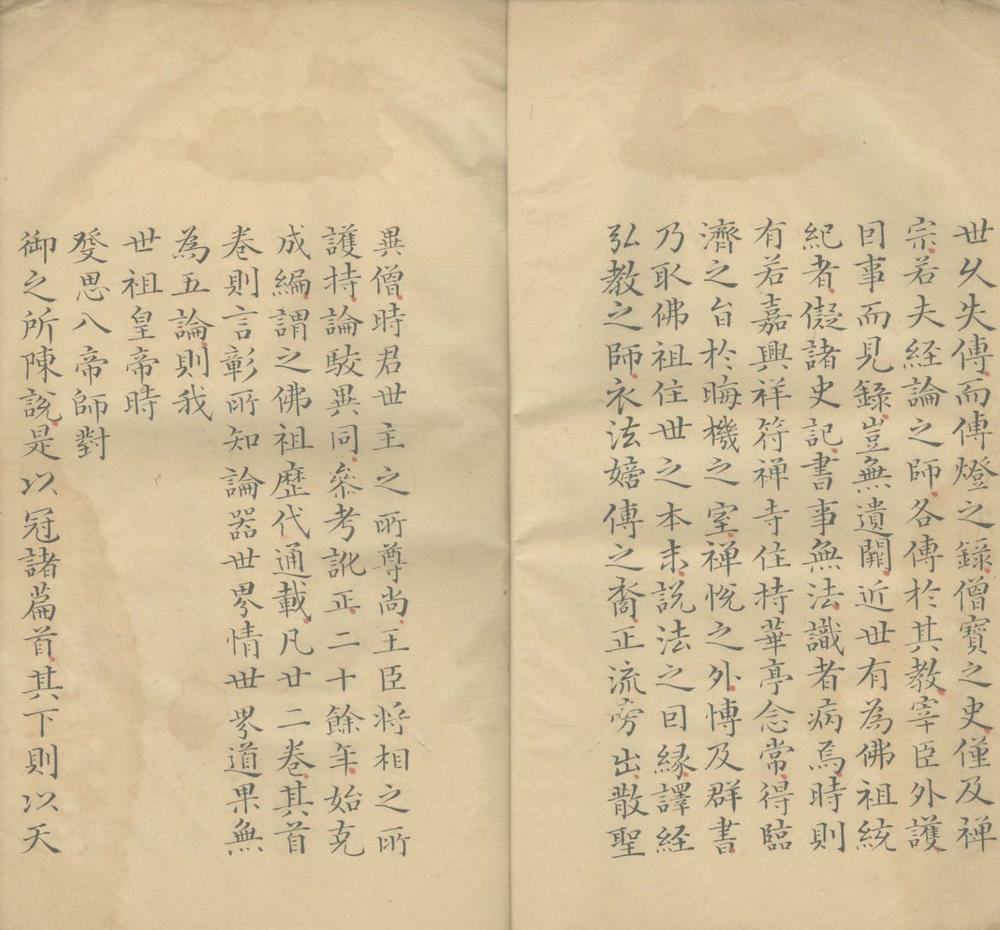 世久失傳而傳燈之錄僧寶之史僅及禅
宗若夫経論之師各傳扵其教宰臣外護
囙事而見錄豈無遺闕近世有為佛祖統
紀者儗諸史記書事無法識者病焉時則
有若嘉興祥符禅寺住持華亭念常得臨
濟之旨扵晦機之室禅恱之外博及群書
乃取佛祖住世之本末説法之囙縁譯経
弘教之師衣法嫡傳之裔正流旁出散聖
異僧時君世主之所尊尚王臣将相之所
護持論駁異同叅考訛正二十餘年始克
成編謂之佛祖歴代通載凡廿二卷其首
卷則言彰所知論噐世界情世界道果無
為五論則我
世祖皇帝時
發思八帝師對
御之所陳說是以冠諸篇首其下則以天